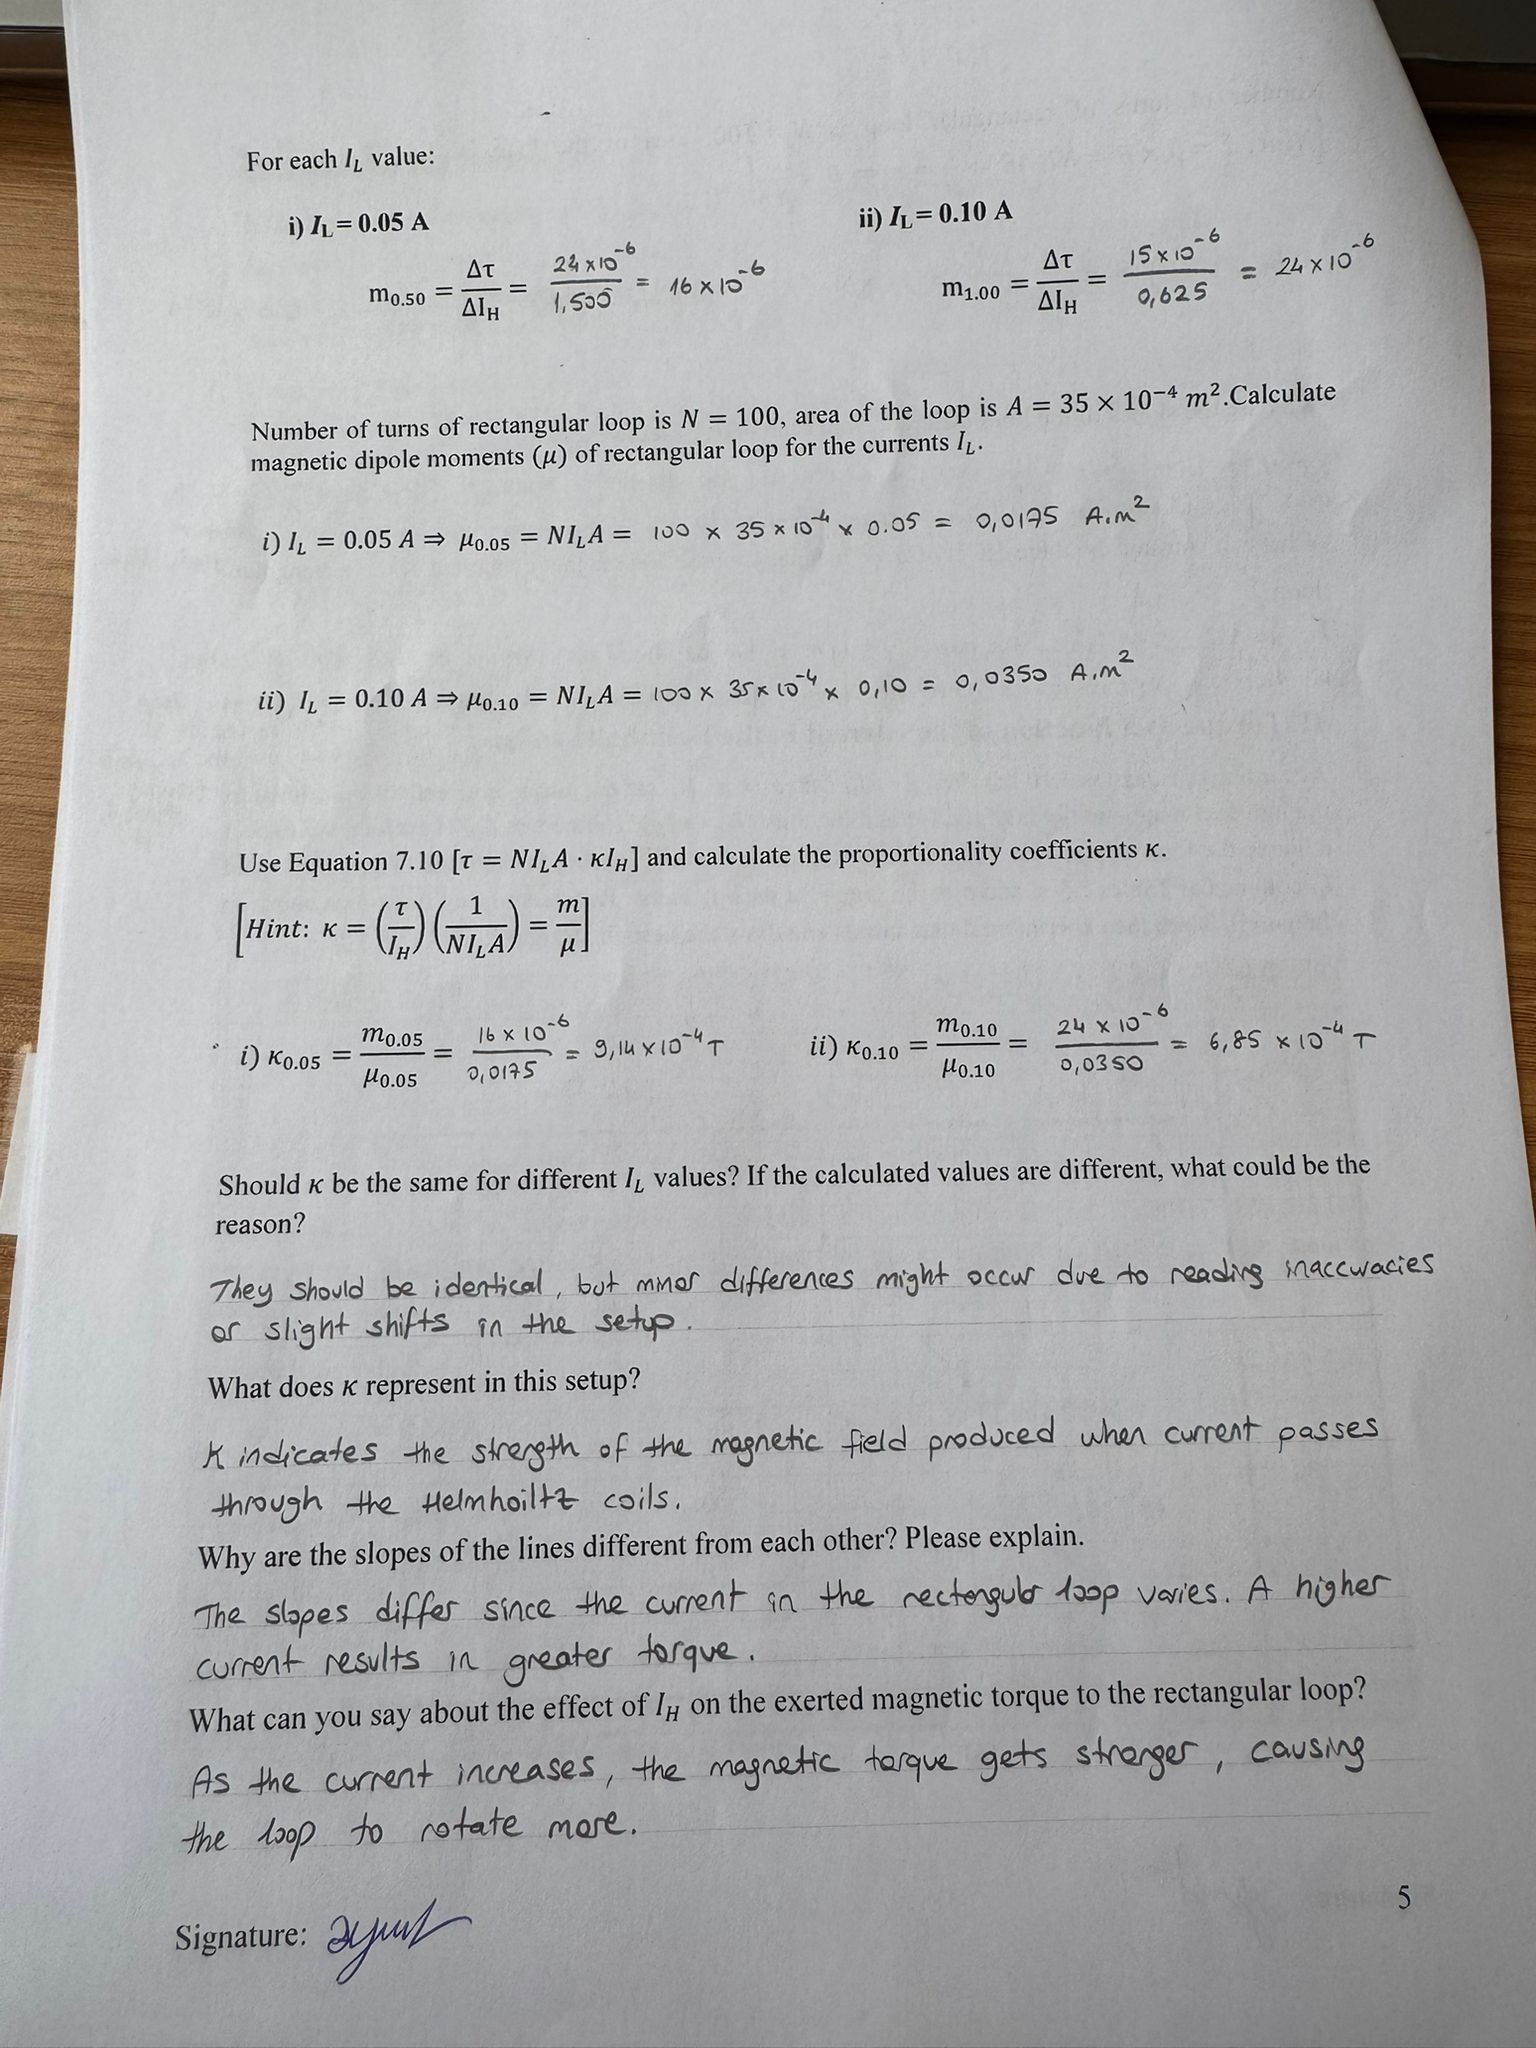 For each I_L value:
i) I_L = 0.05 A
ii) I_L = 0.10 A
m_0.50 = Δτ/ΔI_H = 24 x 10^-6 / 1,500 = 16 x 10^-6
m_1.00 = Δτ/ΔI_H = 15 x 10^-6 / 0,625 = 24 x 10^-6
Number of turns of rectangular loop is N = 100, area of the loop is A = 35 × 10^−4 m^2.Calculate
magnetic dipole moments (μ) of rectangular loop for the currents I_L.
i) I_L = 0.05 A ⇒ μ_0.05 = NI_LA = 100 x 35 x 10^-4 x 0.05 = 0,0175 A.m^2
ii) I_L = 0.10 A ⇒ μ_0.10 = NI_LA = 100 x 35 x 10^-4 x 0,10 = 0,0350 A.m^2
Use Equation 7.10 [τ = NI_LA · κI_H] and calculate the proportionality coefficients κ.
[Hint: κ = (τ/I_H)(1/NI_LA) = m/μ]
i) κ_0.05 = m_0.05/μ_0.05 = 16 x 10^-6 / 0,0175 = 9,14 x 10^-4 T
ii) κ_0.10 = m_0.10/μ_0.10 = 24 x 10^-6 / 0,0350 = 6,85 x 10^-4 T
Should κ be the same for different I_L values? If the calculated values are different, what could be the
reason?
They should be identical, but minor differences might occur due to reading inaccuracies
or slight shifts in the setup.
What does κ represent in this setup?
K indicates the strength of the magnetic field produced when current passes
through the Helmhoiltz coils.
Why are the slopes of the lines different from each other? Please explain.
The slopes differ since the current in the rectangular loop varies. A higher
current results in greater torque.
What can you say about the effect of I_H on the exerted magnetic torque to the rectangular loop?
As the current increases, the magnetic torque gets stronger, causing
the loop to rotate more.
5
Signature: